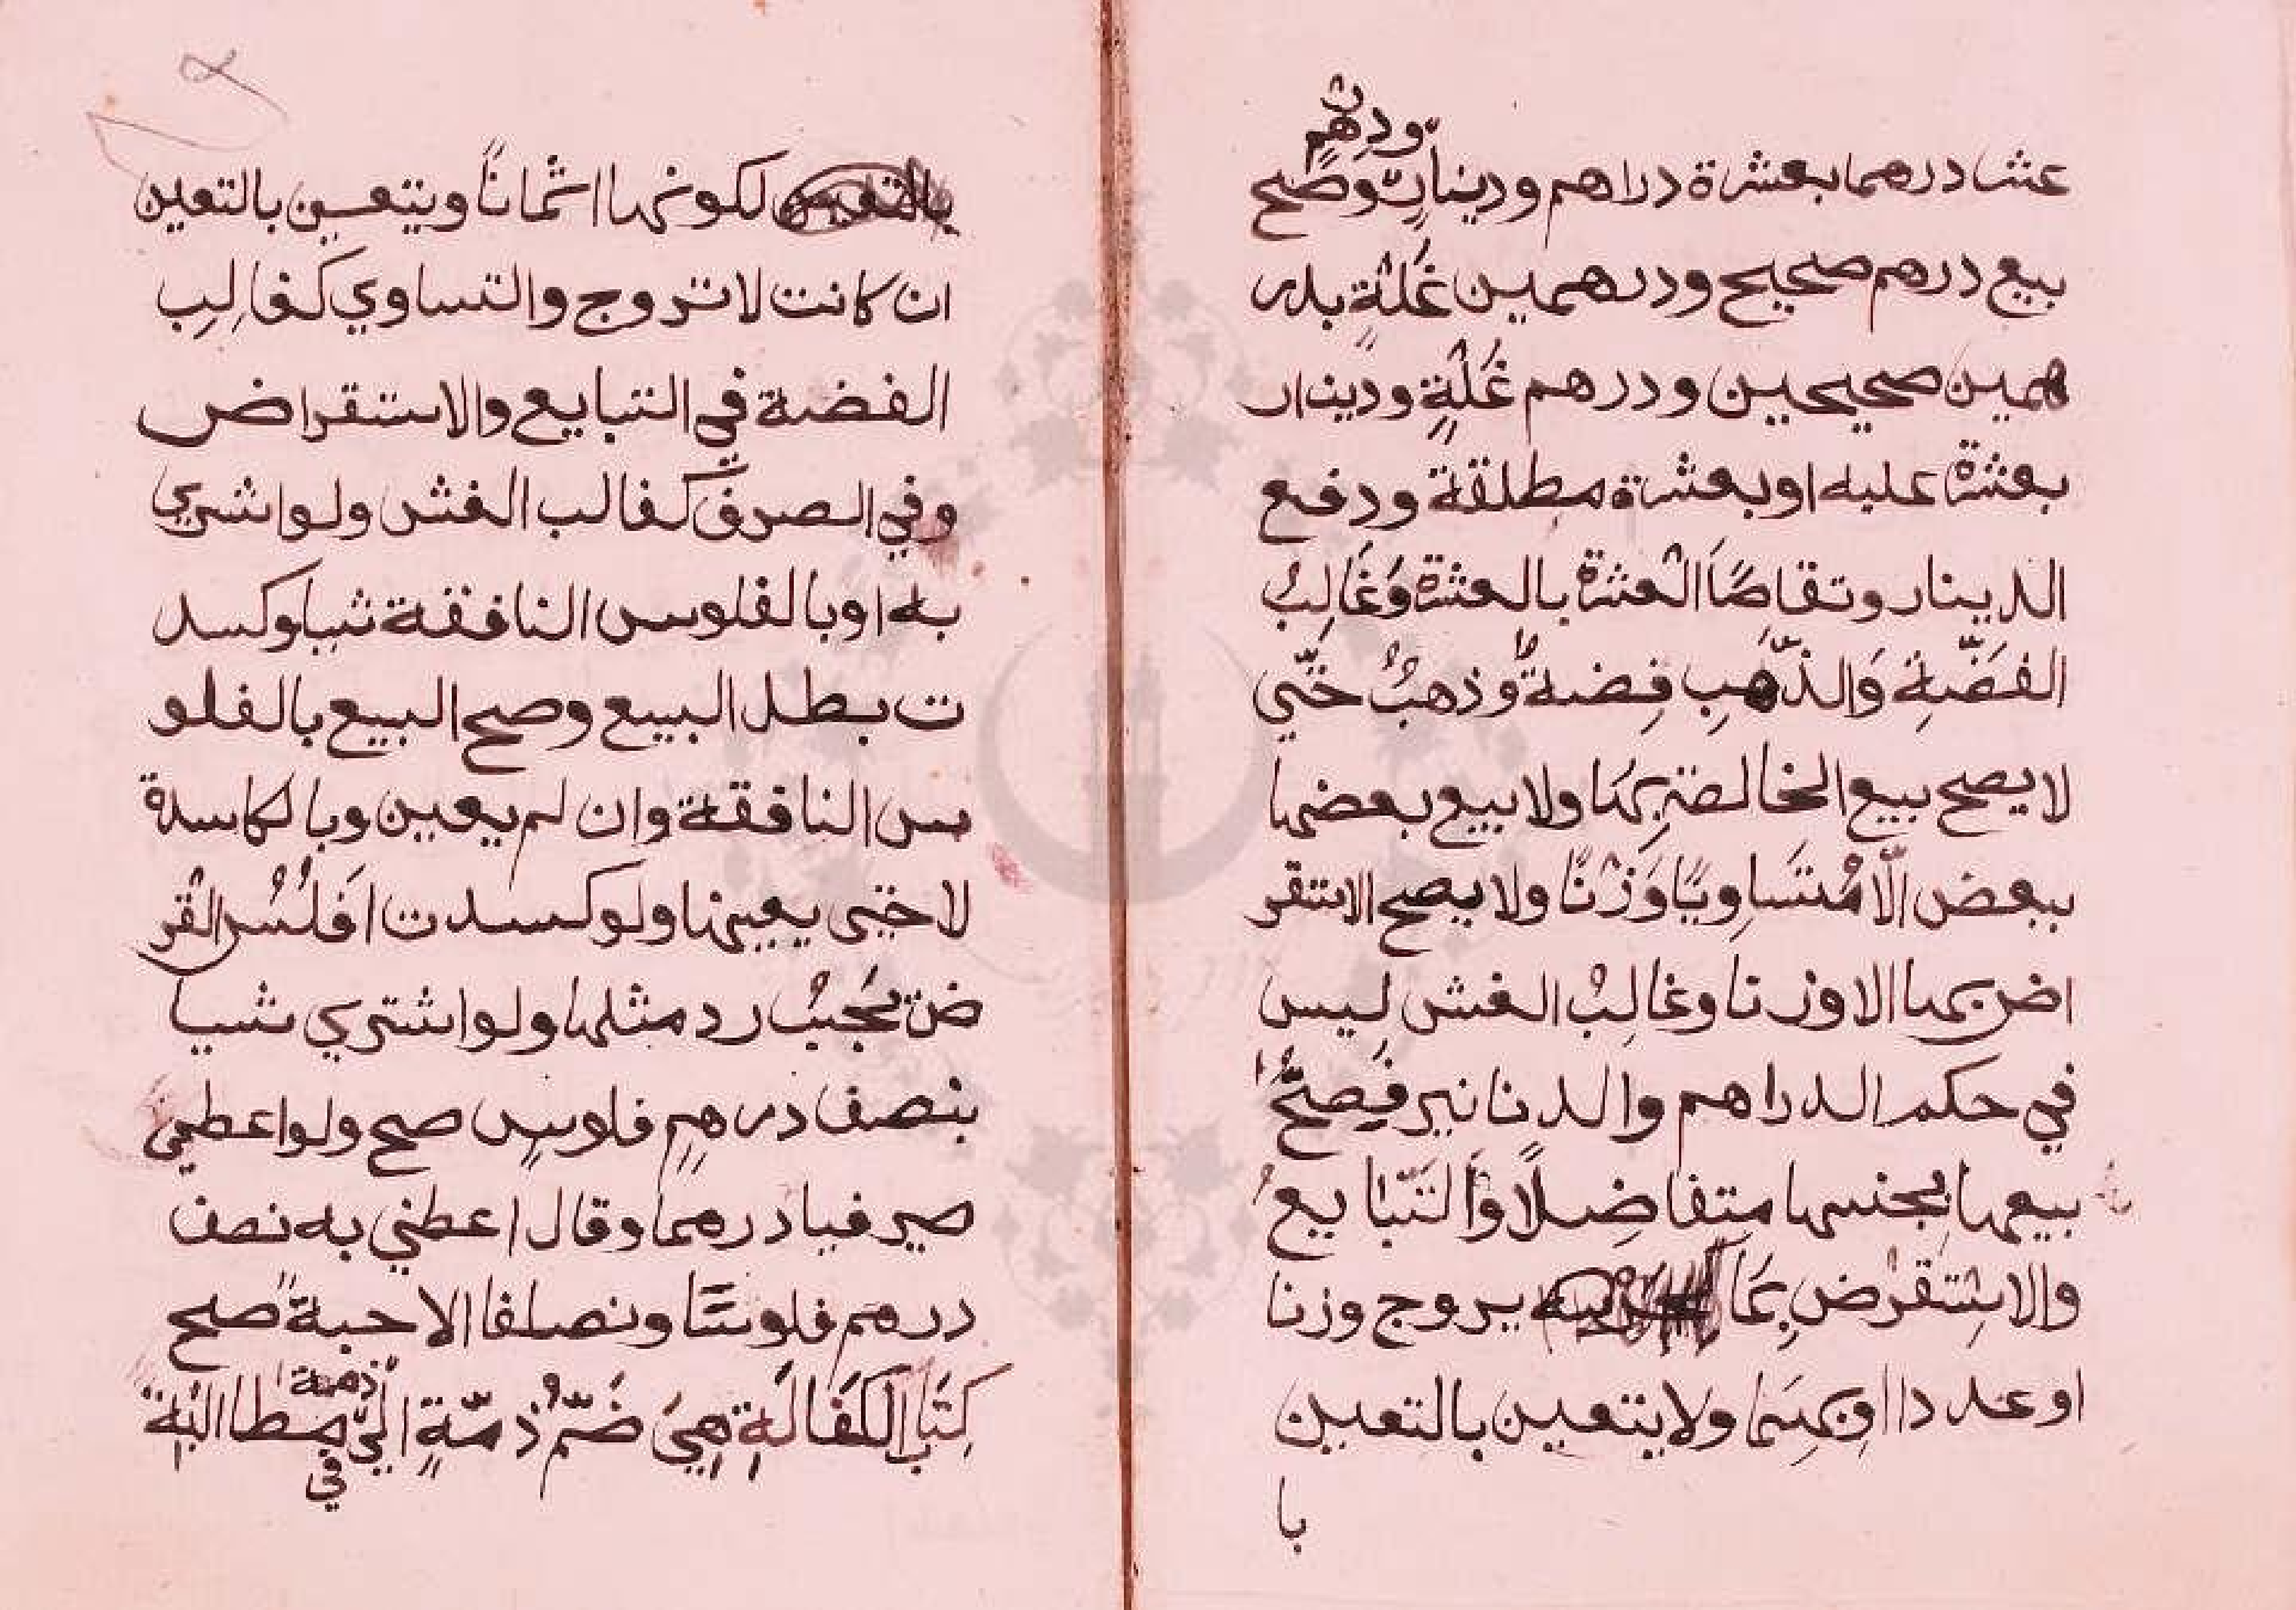 ودرهم
عشر درهما بعشرة دراهم ودينار وصح
بيع درهم صحيح ودرهمين غلة بدر
همين صحيحين ودرهم غلة ودينار
بعشرة عليه او بعشرة مطلقة ودفع
الدينار وتقاصا العشرة بالعشرة وَغَالِبُ
الفضّةِ وَالذّهَبِ فِضة وذهبٌ حَتّي
لا يصح بيع الخالصة بها ولا بيع بعضها
ببعض الّا مُتَسَاوِيًا وَزْنًا ولا يصح الاستقر
اض بها الا وزنا وغالِبُ الغش ليس
في حكم الدراهم والدنانير فيصحُّ
بيعها بجنسها متفاضِلًا وَالتَّبَايعُ
والاستقرْضِ بِمَا يروج وزنا
او عددا او بهما ولا يتعين بالتعيين
با
لكونها اثمانًا ويتعين بالتعين
ان كانت لا تروج والتساوي كغالِب
الفضة في التبايع والاستقراض
وفي الصرف كغالب الغش ولو اشري
به او بالفلوس النافقة شيا وكسد
ت بطل البيع وصح البيع بالفلو
س النافقة وان لم يعين وبالكاسدة
لا حتى يعينها ولو كسدت افلُسُ القر
ض يجبُ رد مثلها ولو اشتري شيا
بنصف درهمٍ فلوسٍ صح ولو اعطى
صيرفيا درهما وقال اعطني به نصف
درهم فلوسًا ونصلفا الا حبة صح
كِتَابُ الكَفَالَةِ هِيَ ضَمُّ ذمّةٍ الي ذمة في مطالبة